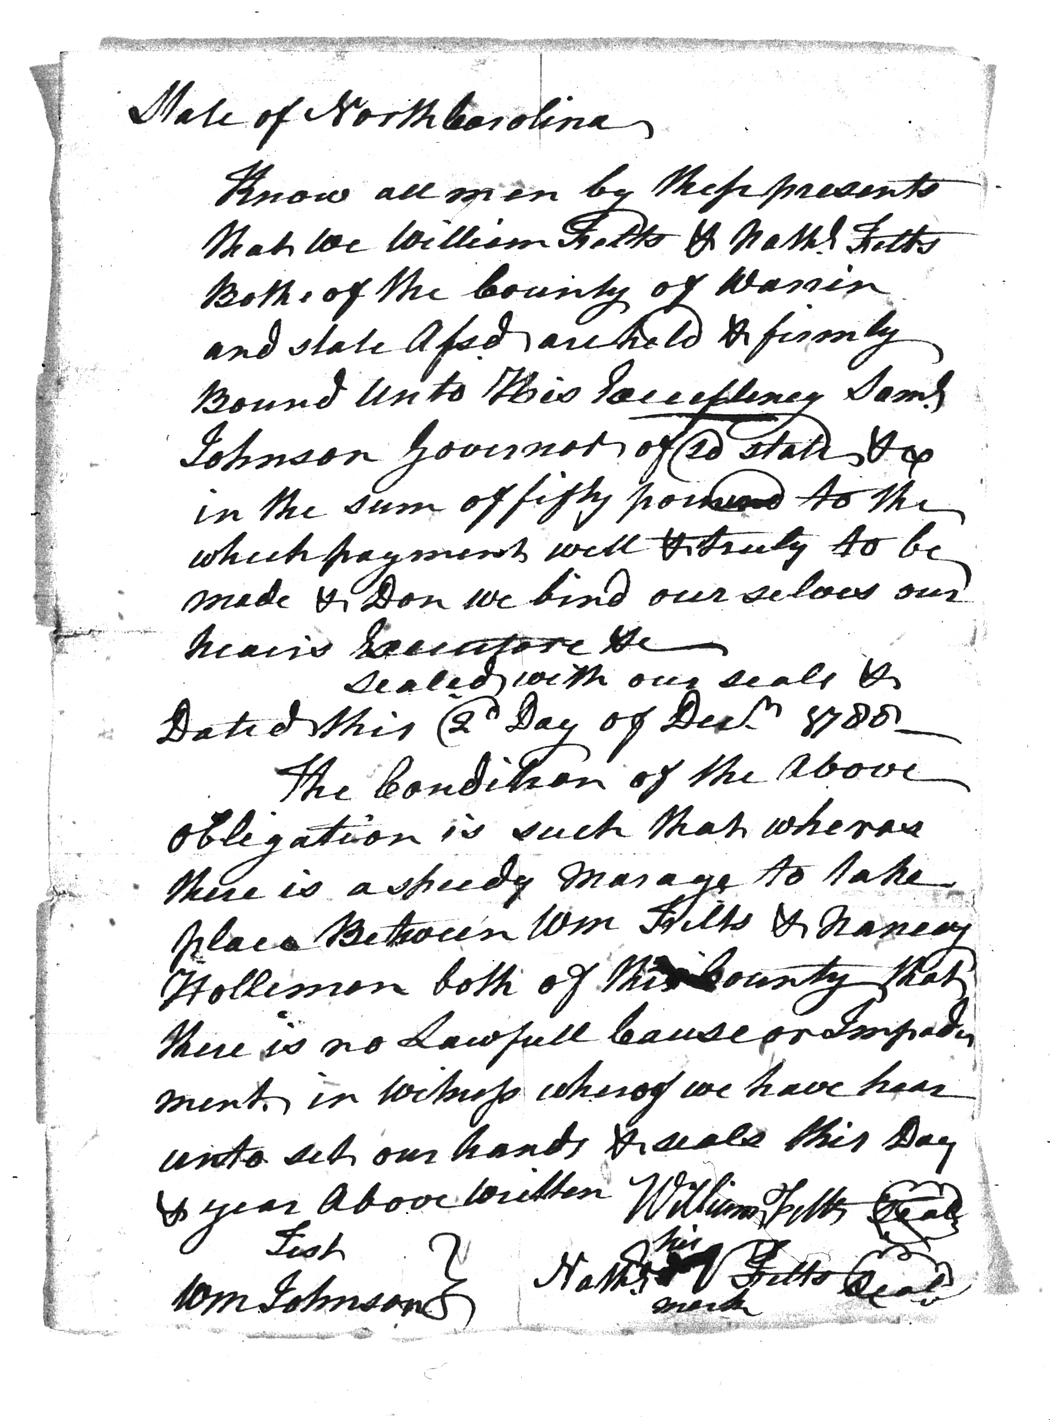 State of North Carolina
Know all men by these presents
that we William Felts & Nathl Felts
Both of the County of Warrin
and state Afsd are held & firmly
Bound unto This Excellency Saml
Johnson Governor of sd state &c
in the sum of fifty pound to the
which payment well & truly to be
made & Don we bind our selves our
heairs Executors &c
sealed with our seals &
Dated this 2d Day of Decm 1788
The Condition of the Above
obligation is such that wheras
there is a speedy Marage to take
place Between Wm Felts & Nancey
Hollimon both of this County that
there is no Lawfull Cause or Impedi
ment in witness wherof we have hear
unto set our hands & seals this Day
& year Above written William Felts Seal
Test his
Wm Johnson Nathl Felts Seal
mark